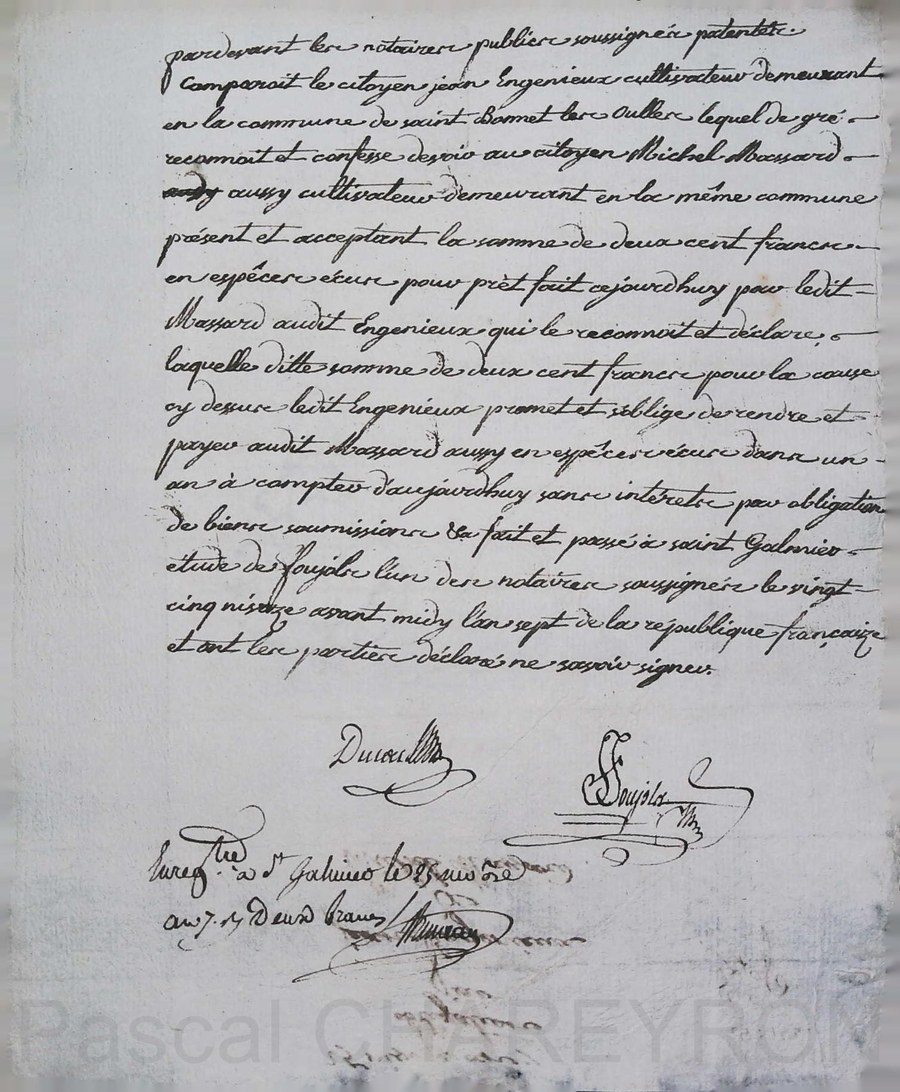 pardevant les notaires publics soussignés patentés.
Comparait le citoyen jean Engenieux cultivateur demeurant
en la commune de saint Bonnet les oulles lequel de gré
reconnoit et confesse devoir au citoyen Michel Massard
aussy cultivateur demeurant en la même commune
présent et acceptant la somme de deux cent francs
en espêces écus pour prêt fait cejourdhuy par ledit
Massard audit Engenieux qui le reconnoit et déclare,
laquelle ditte somme de deux cent francs pour la cause
cy dessus ledit Engenieux promet et s'oblige de rendre et
payer audit Massard aussy en espêces écus dans un
an à compter d'aujourdhuy sans intérêts par obligation
de biens soumissions &a fait et passé à saint Galmier
etude de foujols l'un des notaires soussignés le vingt
cinq nivoze avant midy l'an sept de la république françaize
et ont les parties déclaré ne savoir signer.
foujols
Enregtré à St Galmier le 25 nivôse
an 7. Deux francs
Pascal CHAREYRON